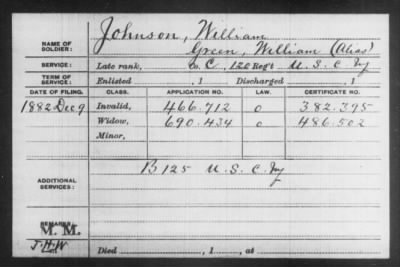 Johnson, William
NAME OF SOLDIER: Green, William (Alias)
SERVICE: Late rank, C, 120 Reg't U.S.C. Inf
TERM OF SERVICE: Enlisted , 1 Discharged , 1
DATE OF FILING. CLASS. APPLICATION NO. LAW. CERTIFICATE NO.
1882 Dec 9 Invalid, 466.712 o 382.395
Widow, 690.434 o 486.502
Minor,
B 125 U.S.C. Inf
ADDITIONAL SERVICES:
REMARKS:
M. M.
J.H.W. Died , 1 , at